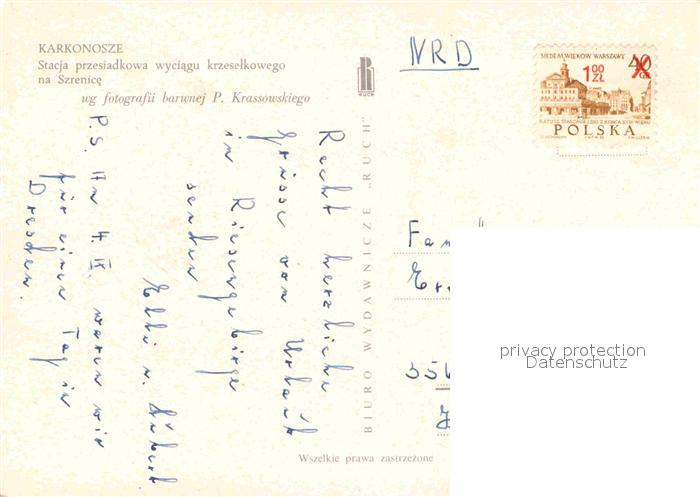 KARKONOSZE
Stacja przesiadkowa wyciągu krzesełkowego
na Szrenicę
wg fotografii barwnej P. Krassowskiego
RUCH
NRD
SIEDEM WIEKÓW WARSZAWY
40
1,00
ZŁ
POLSKA
BIURO WYDAWNICZE „RUCH”
Recht herzliche
Grüsse von Urlaub
in Riesengebirge
senden
Elli u.
P.S. Am 4. IX. waren wir
für einen Tag in
Dresden.
Fam
556
Wszelkie prawa zastrzeżone
privacy protection
Datenschutz